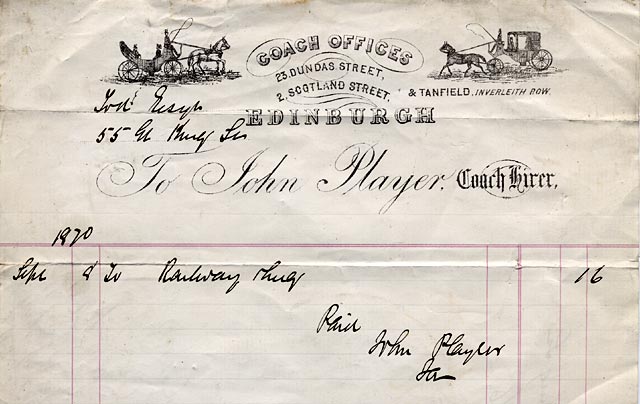 COACH OFFICES
23, DUNDAS STREET,
2, SCOTLAND STREET, & TANFIELD, INVERLEITH ROW.
EDINBURGH
55 Gt King St
To John Player. Coach Hirer,
1870
Sept 8 To Railway 1 6
Paid
John Player